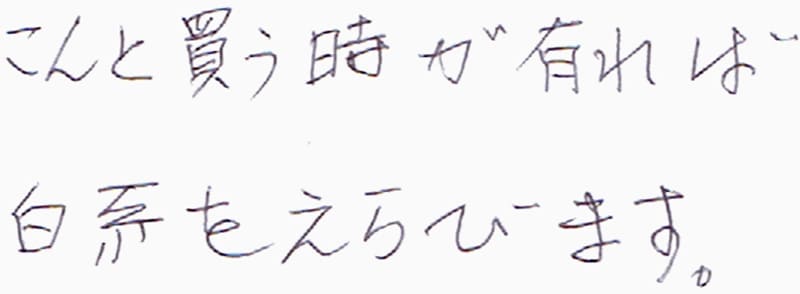 こんと買う時が有れば
白系をえらびます。